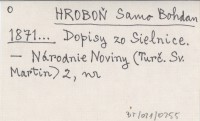 o
HROBOŇ Samo Bohdan
1871... Dopisy zo Sielnice.
— Národnie Noviny (Turč. Sv.
Martin) 2, nr